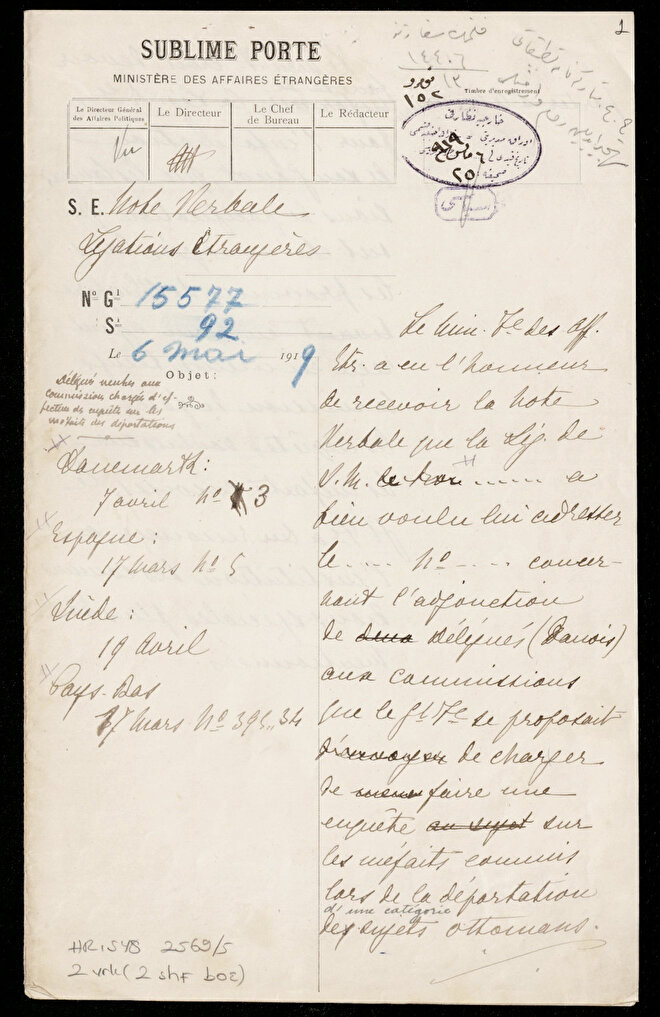 1
SUBLIME PORTE
MINISTÈRE DES AFFAIRES ÉTRANGÈRES
Timbre d'enregistrement
Le Directeur Général
des Affaires Politiques
Le Directeur
Le Chef
de Bureau
Le Rédacteur
Vu
خارجیه نظارتی
S. E. Note Verbale
Légations Etrangères
No Gl 15577
Sl 92
Le 6 Mai 1919
Objet:
Délégués neutres aux
commissions chargées d'ef-
fection de enquête sur les
méfaits des déportations
Danemark:
7 avril No 3
Espagne:
17 Mars No 5
Suède:
19 Avril
Pays-Bas
17 Mars No 395..34
Le Min. Jl des Aff.
Etr. a eu l'honneur
de recevoir la Note
Verbale que la Lég. de
S. M. ........ a
bien voulu lui adresser
le .... No .... concer-
nant l'adjonction
de deux Délégués (Danois)
aux commissions
que le Gt Jl se proposait
d'envoyer de charger
de faire une
enquête au sujet sur
les méfaits commis
lors de la déportation
d'une catégorie
des sujets ottomans.
HR.SYS 2569/5
2 vrk (2 shf boş)